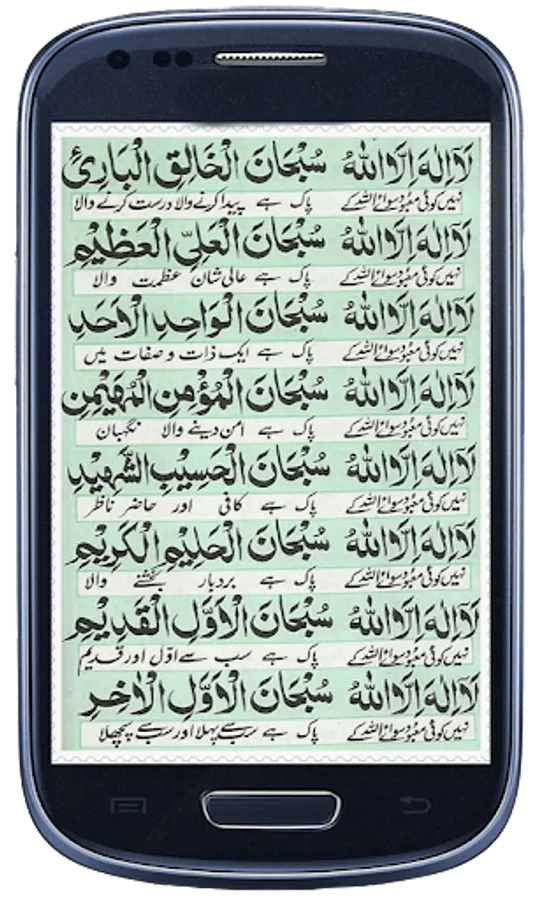 لَآ اِلٰهَ اِلَّا اللّٰهُ سُبْحَانَ الْخَالِقِ الْبَارِئِ
نہیں کوئی معبود سوائے اللہ کے پاک ہے پیدا کرنے والا درست کرنے والا
لَآ اِلٰهَ اِلَّا اللّٰهُ سُبْحَانَ الْعَلِيِّ الْعَظِيْمِ
نہیں کوئی معبود سوائے اللہ کے پاک ہے عالی شان عظمت والا
لَآ اِلٰهَ اِلَّا اللّٰهُ سُبْحَانَ الْوَاحِدِ الْاَحَدِ
نہیں کوئی معبود سوائے اللہ کے پاک ہے ایک ذات و صفات میں
لَآ اِلٰهَ اِلَّا اللّٰهُ سُبْحَانَ الْمُؤْمِنِ الْمُهَيْمِنِ
نہیں کوئی معبود سوائے اللہ کے پاک ہے امن دینے والا نگہبان
لَآ اِلٰهَ اِلَّا اللّٰهُ سُبْحَانَ الْحَسِيْبِ الشَّهِيْدِ
نہیں کوئی معبود سوائے اللہ کے پاک ہے کافی اور حاضر ناظر
لَآ اِلٰهَ اِلَّا اللّٰهُ سُبْحَانَ الْحَلِيْمِ الْكَرِيْمِ
نہیں کوئی معبود سوائے اللہ کے پاک ہے بردبار بخشنے والا
لَآ اِلٰهَ اِلَّا اللّٰهُ سُبْحَانَ الْاَوَّلِ الْقَدِيْمِ
نہیں کوئی معبود سوائے اللہ کے پاک ہے سب سے اوّل اور قدیم
لَآ اِلٰهَ اِلَّا اللّٰهُ سُبْحَانَ الْاَوَّلِ الْاٰخِرِ
نہیں کوئی معبود سوائے اللہ کے پاک ہے سب سے پہلا اور سب سے پچھلا